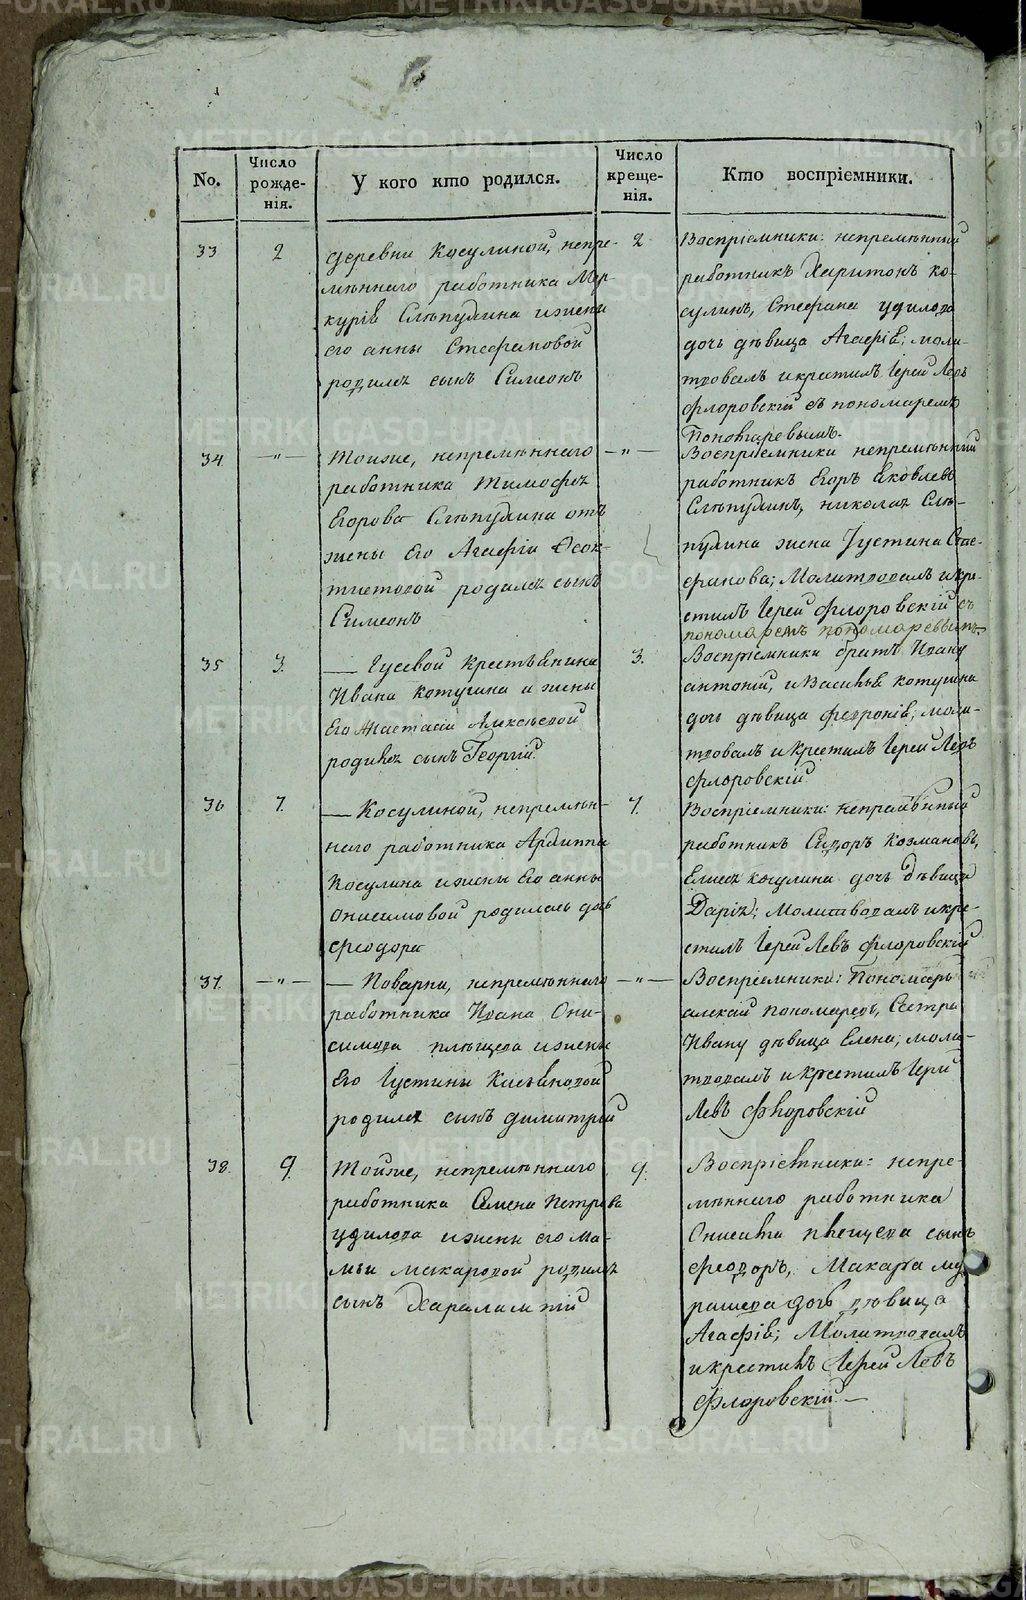 METRIKI.GASO-URAL.RU
No.
Число рожде-нія.
У кого кто родился.
Число креще-нія.
Кто воспріемники.
33
2
деревни Косулиной, непре-
мѣннаго работника Мер-
курія Слѣпухина и жены
его анны Стефановой
родился сынъ Симеонъ
2
Воспріемники: непремѣнный
работникъ Харитонъ ко-
сулинъ, Стефана удилова
дочь дѣвица Агафія; моли-
твовалъ и крестилъ Іерей Левъ
флоровскій съ пономаремъ
Пономаревымъ.
34
—"—
тойже, непремѣннаго
работника Тимофея
Егорова Слѣпухина отъ
жены его Агафіи Ѳеок-
тистовой родился сынъ
Симеонъ
—"—
Воспріемники непремѣнный
работникъ Егоръ Яковлевъ
Слѣпухинъ, николая Слѣ-
пухина жена Іустина Сте-
фанова; Молитвовалъ и кре-
стилъ Іерей флоровскій съ
пономаремъ пономаревымъ
35
3.
— Гусевой крестьянина
Ивана котугина и жены
его Анастасіи Алексѣевой
родился сынъ Георгій
3.
Воспріемники братъ Ивану
антоній, и Василья котугина
дочь дѣвица февронія; моли-
твовалъ и крестилъ Іерей Левъ
флоровскій
36
7.
— Косулиной, непремѣн-
наго работника Архиппа
Косулина и жены его анны
онисимовой родилась дочь
феодора
7.
Воспріемники: непремѣнный
работникъ Сидоръ Козмановъ,
Елисея косулина дочь дѣвица
Дарія; Молитвовалъ и кре-
стилъ Іерей Левъ флоровскій
37.
—"—
— Поварни, непремѣннаго
работника Ивана Они-
симова плѣщева и жены
его Іустины Касьяновой
родился сынъ димитрій
—"—
Воспріемники: Пономарь
алексѣй пономаревъ, Сестра
Ивану дѣвица Елена; моли-
твовалъ и крестилъ Іерей
Левъ Флоровскій
38.
9.
тойже, непремѣннаго
работника Семена Петрова
удилова и жены его Ма-
макаровой родился
сынъ Харалампій
9.
Воспріемники: непре-
мѣннаго работника
Онисима плещева сынъ
феодоръ, Макара му-
рашева дочь дѣвица
Агафія; Молитвовалъ
и крестилъ Іерей Левъ
Флоровскій —